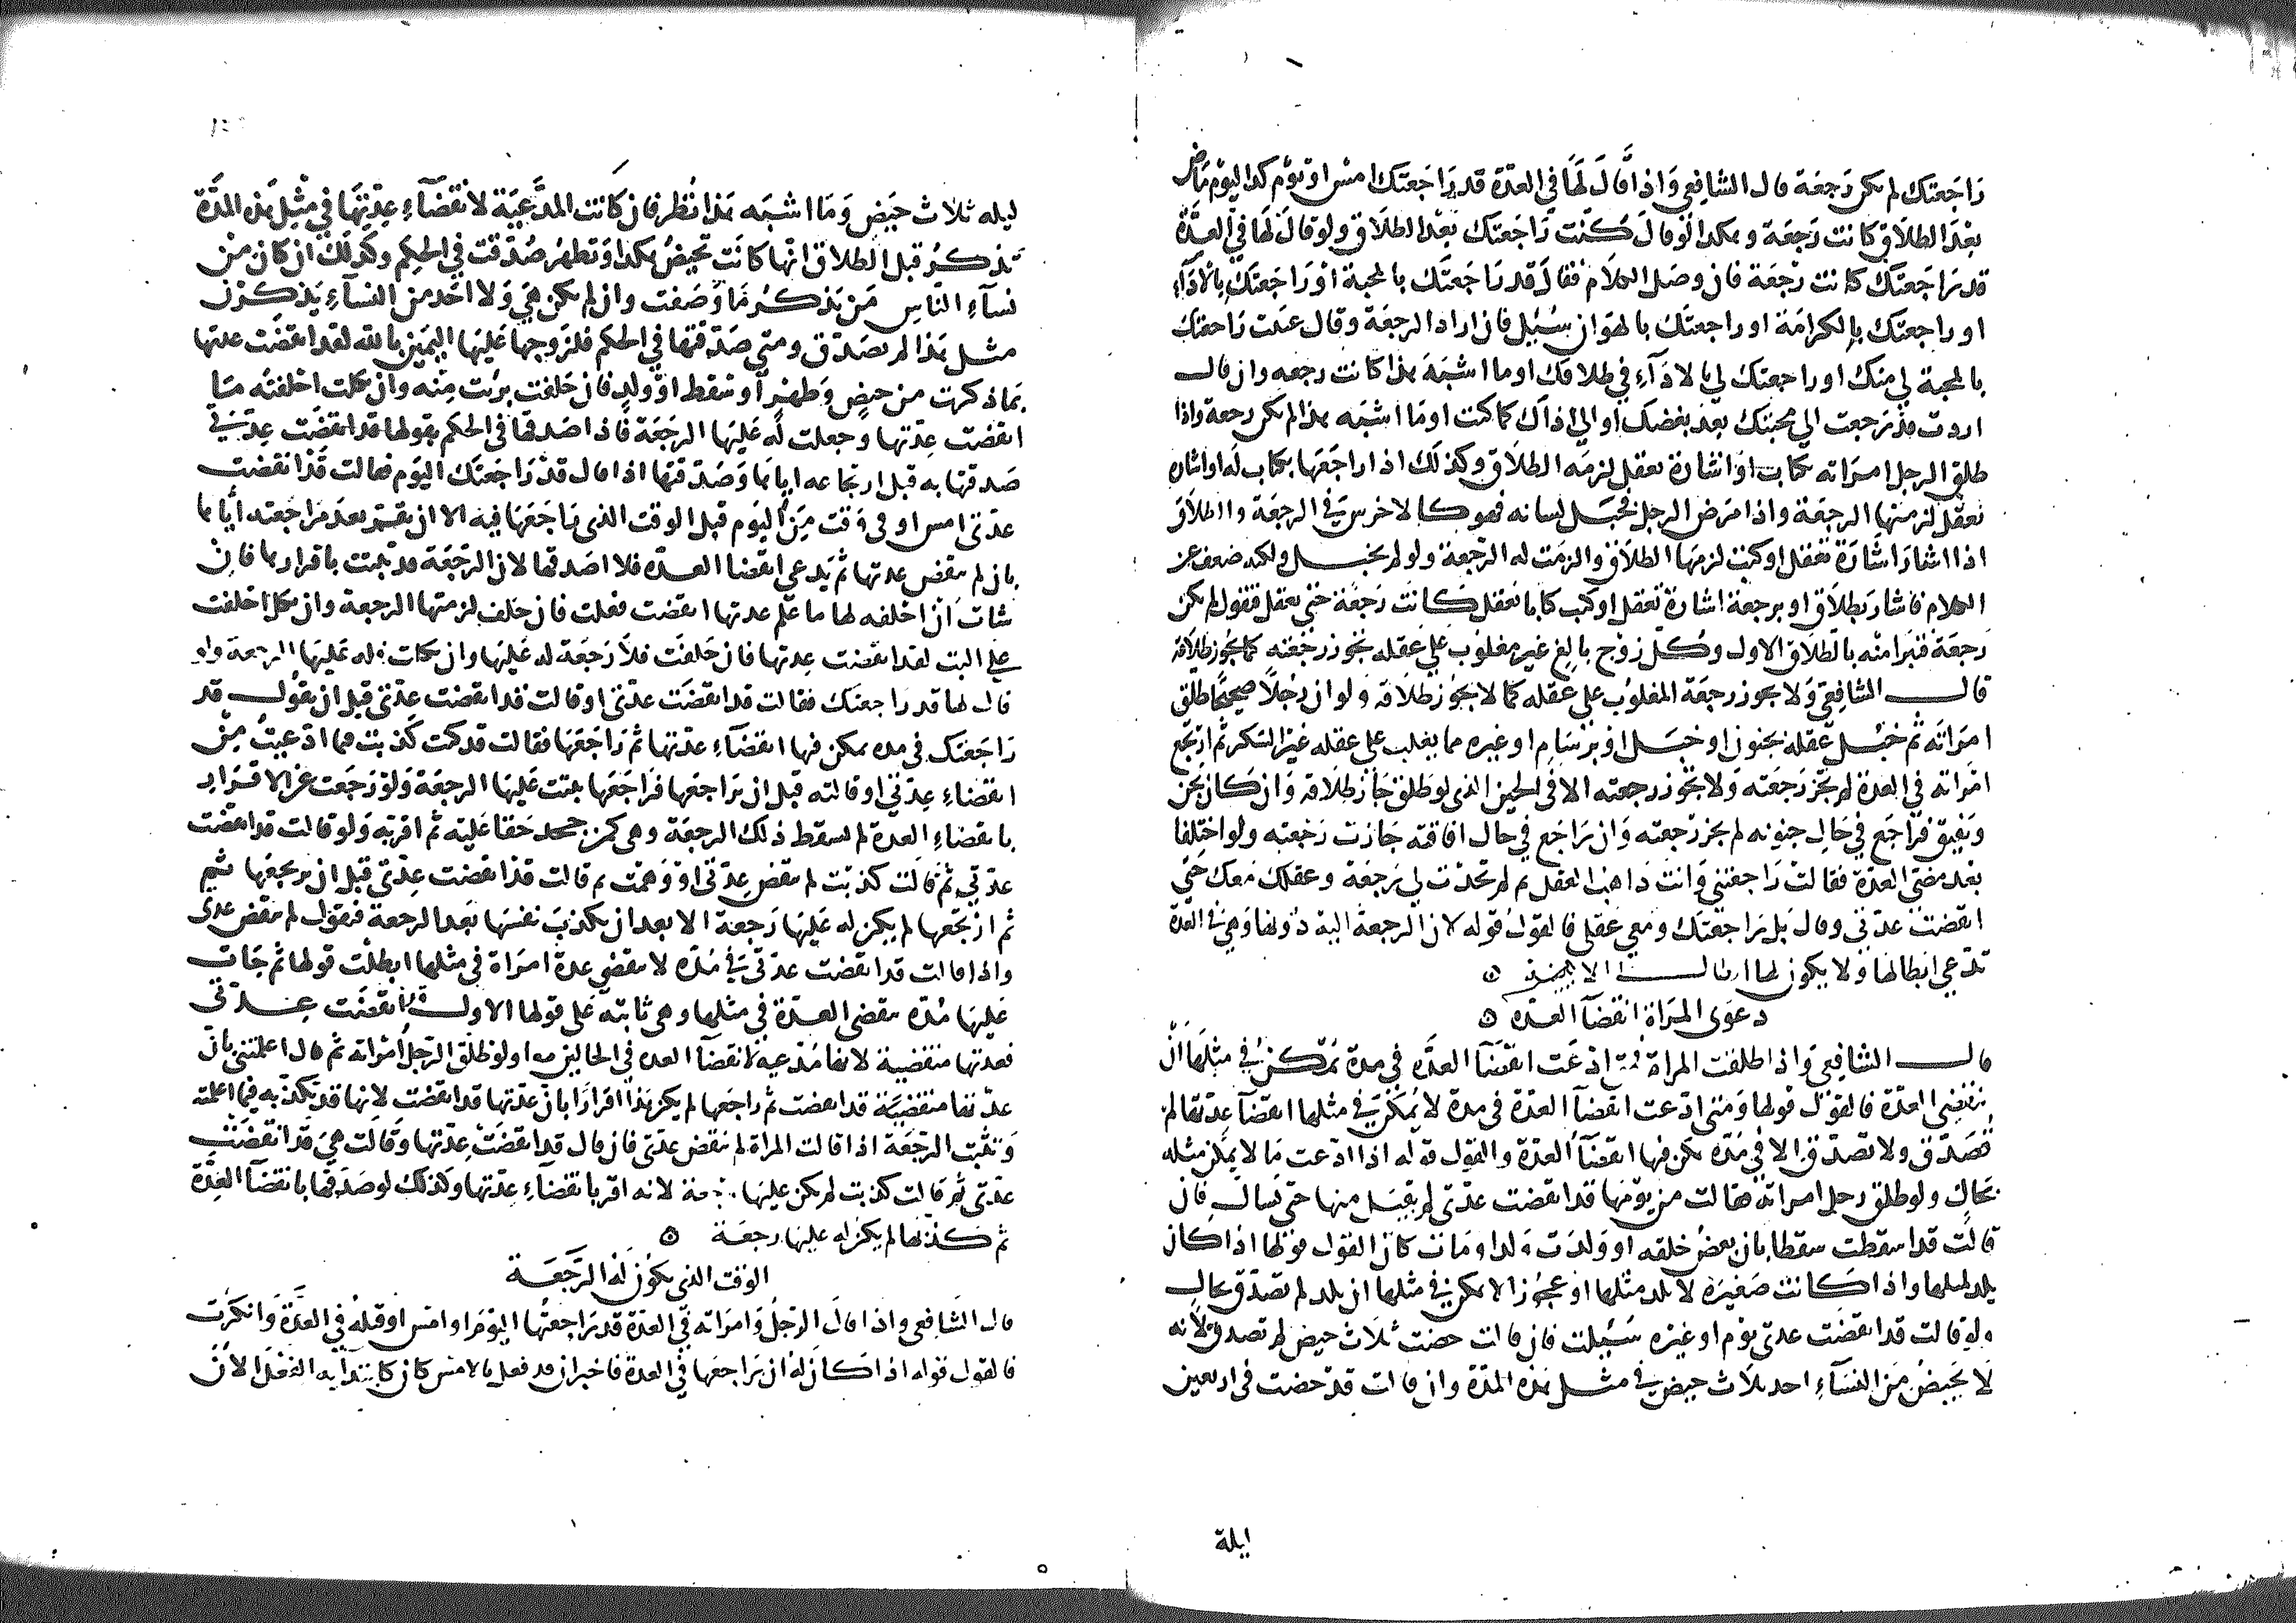 راجعتك لم يكن رجعة قال الشافعي واذا قال لها في العدة قد راجعتك امس او يوم كذا ليوم ماض
بعد الطلاق كانت رجعة وهكذا لو قال كنت راجعتك بعد الطلاق ولو قال لها في العدة
قد راجعتك كانت رجعة فان وصل الكلام فقال قد راجعتك بالمحبة او راجعتك بالاذاء
او راجعتك بالكرامة او راجعتك بالهوان سئل فان اراد الرجعة وقال عنيت راجعتك
بالمحبة لي منك او راجعتك لي بالاذاء في طلاقك او ما اشبه هذا كانت رجعه وان قال
اردت قد رجعت الى محبتك بعد بغضك او الى اذاك كما كنت او ما اشبه هذا لم يكن رجعة واذا
طلق الرجل امراته بكتاب او اشارة تعقل لزمه الطلاق وكذلك اذا راجعها بكتاب له او اشارة
تعقل لزمتها الرجعة واذا مرض الرجل فخبل لسانه فهو كالاخرس في الرجعة والطلاق
اذا اشار اشارة تعقل او كتب لزمها الطلاق والزمت له الرجعة ولو لم يخبل ولكنه ضعف عن
الكلام فاشار بطلاق او برجعة اشارة تعقل او كتب كتابا يعقل كانت رجعة حتى يعقل فيقول لم يكن
رجعة فتبرا منه بالطلاق الاول وكل زوج بالغ غير مغلوب على عقله تجوز رجعته كما يجوز طلاقه
قال الشافعي ولا يجوز رجعة المغلوب على عقله كما لا يجوز طلاقه ولو ان رجلا صحيحا طلق
امراته ثم خبل عقله بجنون او خبل او برسام او غيره مما يغلب على عقله غير السكر ثم ارتجع
امراته في العدة لم تجز رجعته ولا تجوز رجعته الا في الحين الذي لو طلق جاز طلاقه وان كان يجن
ويفيق فراجع في حال جنونه لم يجز رجعته وان راجع في حال افاقته جازت رجعته ولو اختلفا
بعد مضي العدة فقالت راجعتني وانت ذاهب العقل ثم لم تحدث لي رجعة وعقلك معك حتى
انقضت عدتي وقال بل راجعتك ومعي عقلي فالقول قوله لان الرجعة اليه دونها وهي في العدة
تدعي ابطالها ولا يكون لها ابطالها الا ببينة
دعوى المراة انقضا العده
قال الشافعي واذا طلقت المراة فادعت انقضا العده في مدة يمكن في مثلها ان
تنقضي العدة فالقول قولها ومتى ادعت انقضآ العدة في مدة لا يمكن في مثلها انقضا عدتها لم
تصدق ولا تصدق الا في مده يمكن فيها انقضا العدة والقول قوله اذا ادعت ما لا يمكن مثله
بحال ولو طلق رجل امراته فقالت من يومها قد انقضت عدتي لم يقبل منها حتى تسال فان
قالت قد اسقطت سقطا بان بعض خلقه او ولدت ولدا ومات كان القول قولها اذا كان
يلد لمثلها واذا كانت صغيرة لا يلد مثلها او عجوزا لا يمكن في مثلها ان يلد لم تصدق بحال
ولو قالت قد انقضت عدتي يوم او غيره سئلت فان قالت حضت ثلاث حيض لم تصدق لانه
لا يحيض من النسآء احد ثلاث حيض في مثل هذه المدة وان قالت قد حضت في اربعين
ليلة
ليله ثلاث حيض وما اشبه هذا نظر فان كانت المدعية لانقضآء عدتها في مثل هذه المدة
تذكر قبل الطلاق انها كانت تحيض هكذا وتطهر صدقت في الحكم وكذلك ان كان من
نسآء الناس من يذكر ما وصفت وان لم يكن هي ولا احد من النسآء يذكرن
مثل هذا لم تصدق ومتى صدقتها في الحكم فلزوجها عليها اليمين بالله لقد انقضت عدتها
بما ذكرت من حيض وطهر او سقط او ولد فان حلفت برئت منه وان نكلت احلفته ما
انقضت عدتها وجعلت له عليها الرجعة فاذا صدقها في الحكم بقولها قد انقضت عدتي
صدقتها به قبل ارتجاعه اياها وصدقتها اذا قال قد راجعتك اليوم فقالت قد انقضت
عدتي امس او في وقت من اليوم قبل الوقت الذي راجعها فيه الا ان يقر بعد مراجعته اياها
بان لم تنقض عدتها ثم يدعي انقضا العده فلا اصدقها لان الرجعة قد ثبتت باقرارها فان
شات ان احلفه لها ما علم عدتها انقضت فعلت فان حلف لزمتها الرجعة وان نكل احلفت
على البت لقد انقضت عدتها فان حلفت فلا رجعة له عليها وان نكلت فله عليها الرجعة ولو
قال لها قد راجعتك فقالت قد انقضت عدتي او قالت قد انقضت عدتي قبل ان يقول قد
راجعتك في مده يمكن فيها انقضآء عدتها ثم راجعها فقالت قد كنت كذبت فيما ادعيت من
انقضاء عدتي او قالته قبل ان يراجعها فراجعها ثبتت عليها الرجعة ولو رجعت عن الاقرار
بانقضاء العدة لم يسقط ذلك الرجعة وهي كمن جحد حقا عليه ثم اقر به ولو قالت قد انقضت
عدتي ثم قالت كذبت لم تنقض عدتي او وهمت ثم قالت قد انقضت عدتي قبل ان يرتجعها ثم
ثم ارتجعها لم يكن له عليها رجعة الا بعد ان يكذب نفسها بعد الرجعة فتقول لم تنقض عدتي
واذا قالت قد انقضت عدتي في مده لا تنقضي عدة امراة في مثلها ابطلت قولها ثم جات
عليها مدة تنقضي العدة في مثلها وهي ثابته على قولها الاول قد انقضت عدتي
فعدتها منقضية لانها مدعية لانقضآ العده في الحالين معا ولو طلق الرجل امراته ثم قال اعلمتني بان
عدتها منقضية قد انقضت ثم راجعها لم يكن هذا اقرارا بان عدتها قد انقضت لانها قد تكذبه فيما اعلمته
وتثبت الرجعة اذا قالت المراة لم تنقض عدتي فان قال قد انقضت عدتها وقالت هي قد انقضت
عدتي ثم قالت كذبت لم يكن عليها رجعة لانه اقر بانقضآء عدتها وكذلك لو صدقها بانقضآ العدة
ثم كذبها لم يكن له عليها رجعة
الوقت الذي يكون له الرجعة
قال الشافعي واذا قال الرجل وامراته في العدة قد راجعتها اليوم او امس او قبله في العدة وانكرت
فالقول قوله اذا كان له ان يراجعها في العدة فاخبر ان قد فعل بالامس كان كابتدايه الفعل الان